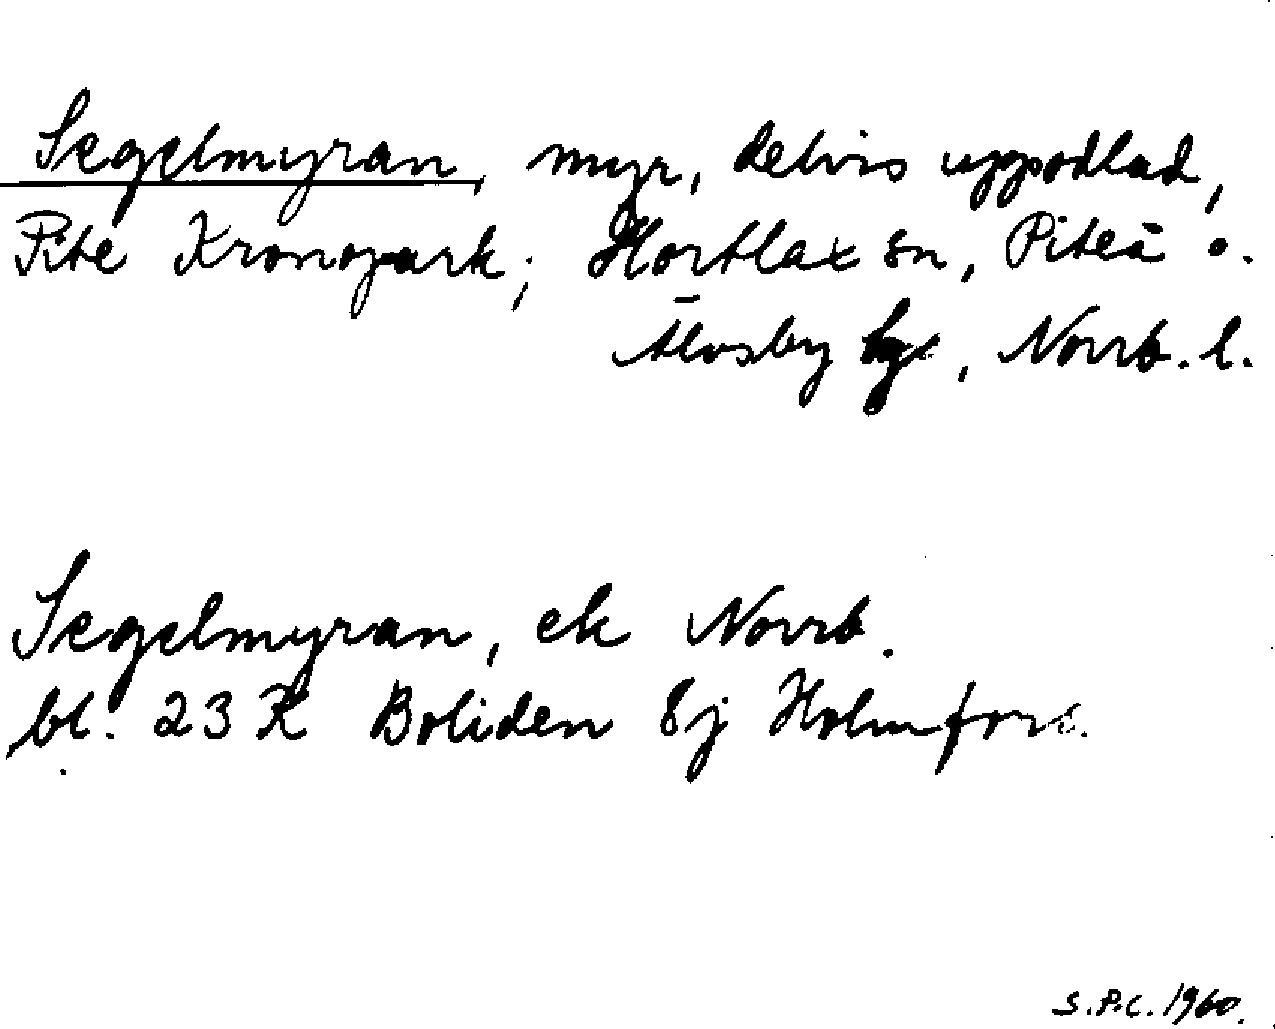 Segelmyran, myr, delvis uppodlad,
Pite Kronopark; Hortlax sn, Piteå o.
Älvsby tgl, Norrb. l.
Segelmyran, ek Norrb.
bl. 23 K Boliden 8j Holmfors.
S.P.C. 1960.